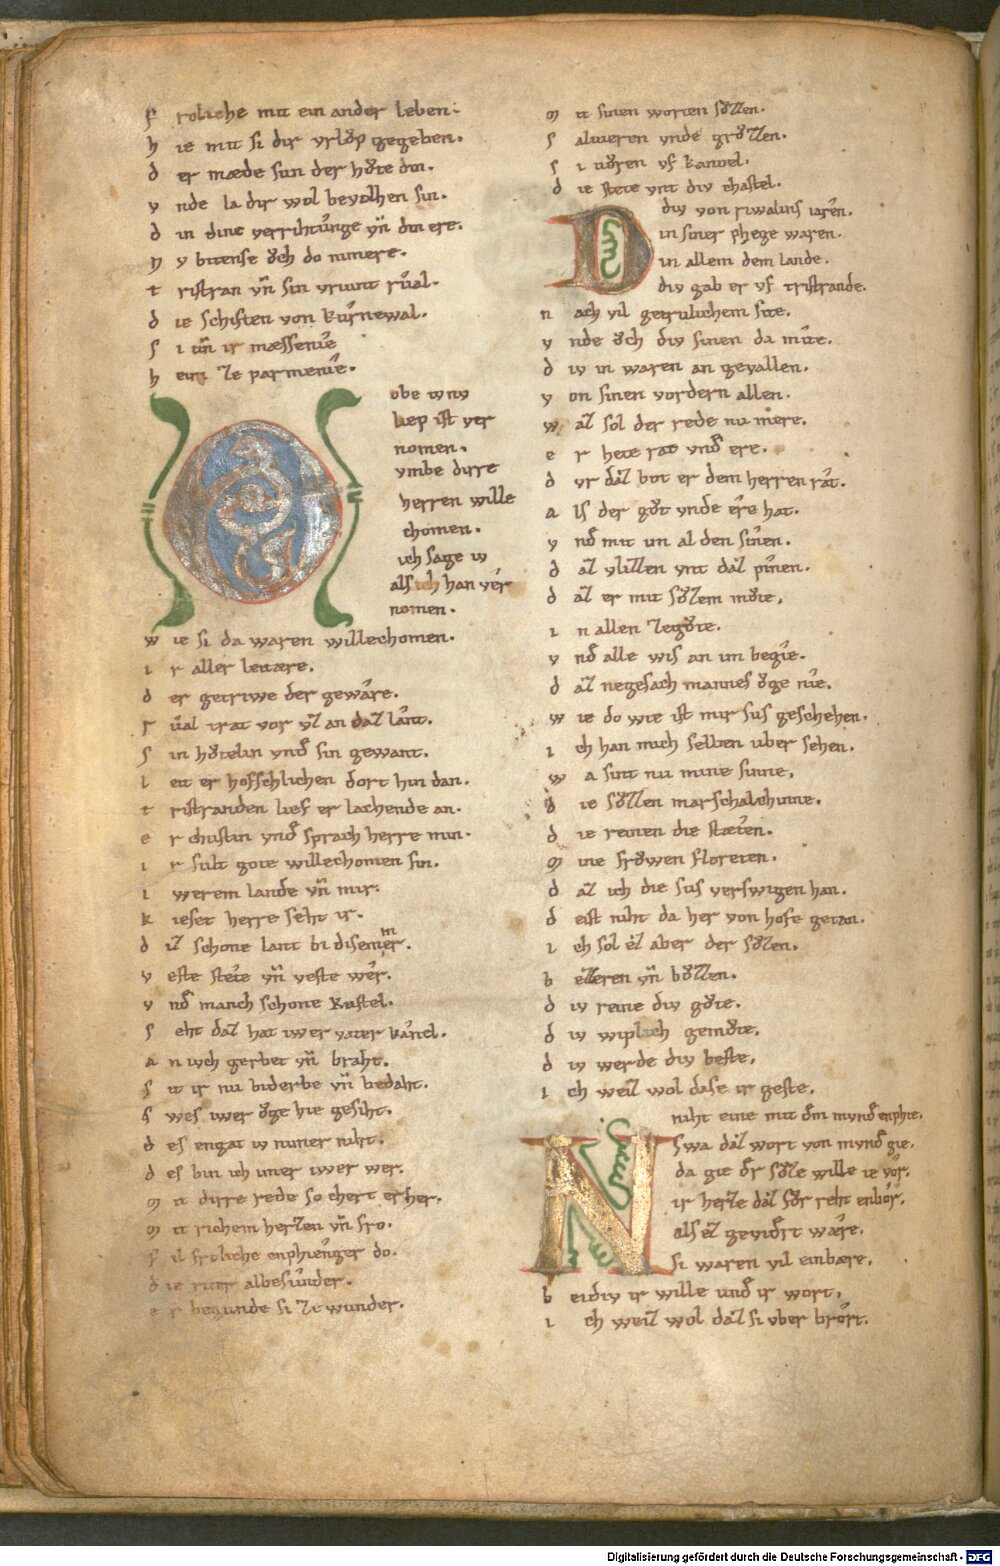 f roliche mit ein ander leben.
h ie mit si dir vrlŏp gegeben.
d er mæde sun der hŏte din.
v nde la dir wol bevolhen sin.
d in dine verrihtunge vñ din ere.
n v bitense ŏch do nimere.
t ristran vñ sin vriunt růal.
d ie schiften von kurnewal.
s i vñ ir mæssenie
h ein ze parmenie.
obe iv nv
liep ist ver
nomen.
vmbe dirre
herren wille
chomen.
ich sage iv
als ich han ver
nomen.
w ie si da waren willechomen.
i r aller leitære.
d er getriwe der gewære.
r ůal trat vor vz an daz lant.
s in hŏtelin vnd sin gewant.
l eit er hofschlichen dort hin dan.
t ristranden lief er lachende an.
e r chustin vnd sprach herre min.
i r sult gote willechomen sin.
i werem lande vñ mir.
k ieset herre seht ir.
d iz schone lant bi disem mer.
v este stete vñ veste wer.
v nd manch schone kastel.
s eht daz hat iwer vater kanel.
a n iuch gerbet vñ braht.
s it ir nu biderbe vñ bedaht.
s wes iwer ŏge hie gesiht.
d es engat iv nimer niht.
d es bin ich imer iwer wer.
m it dirre rede so chert er her.
m it richem herzen vñ fro.
f il frliche enphienger do.
d ie riter albesunder.
e r begunde si ze wunder.
m it sinen worten sŏzzen.
s alueren vnde grŏzzen.
s i fŏren vf kanoel.
d ie stete vnt div chastel.
D div von riwalins iaren.
in siner phlege waren.
in allem dem lande.
div gab er vf tristrande.
n ach vil getrulichem site.
v nde ŏch div sinen da mite.
d iv in waren an gevallen.
v on sinen vordern allen.
w az sol der rede nu mere.
e r hete rat vnd ere.
d vr daz bot er dem herren rat.
a ls der gŏt vnde ere hat.
v nd mit im al den sinen.
d az vlizzen vnt daz pinen.
d az er mit sŏzem mŏte,
i n allen zegŏte.
v nd alle wis an im begie.
d az negesach mannes ŏge nie.
w ie do wie ist mir sus geschehen.
i ch han mich selben uber sehen.
w a sint nu mine sinne,
d ie sŏzzen marschalchinne.
d ie reinen die stæten.
m ine frŏwen floreten.
d az ich die sus verswigen han.
d eist niht da her von hofe getan.
i ch sol ez aber der sŏzen.
b ezzeren vñ bŏzzen.
d iv reine div gŏte.
d iv wiplich gemŏte.
d iv werde div beste.
i ch weiz wol dase ir geste.
N niht eine mit dm mvnd enphie.
Swa daz wort von mvnd gie.
da gie dr sŏze wille ie vor.
ir herze daz fŏr reht enbor.
als ez gevidrt wære.
si waren vil einbære.
b eidiv ir wille und ir wort.
i ch weiz wol daz si vber bort.
Digitalisierung gefördert durch die Deutsche Forschungsgemeinschaft - DFG